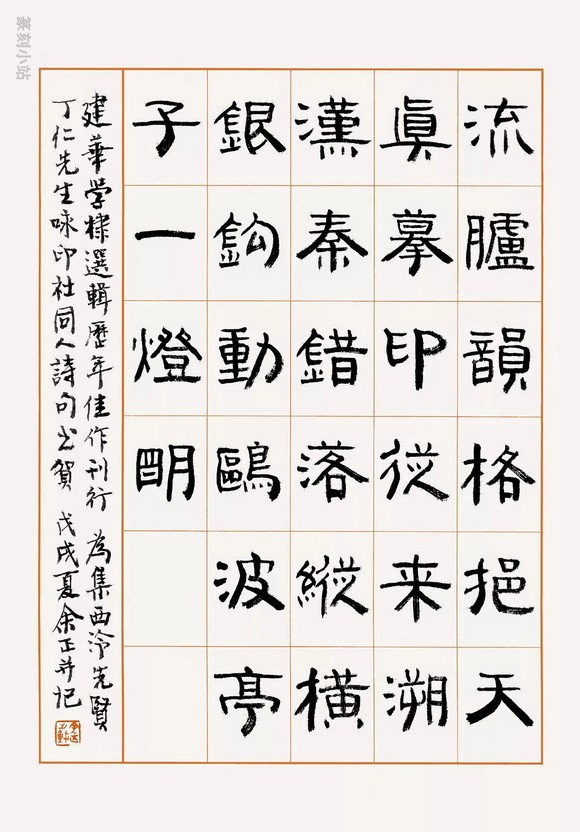 流臚韻格挹天
眞摹印從来溯
漢秦錯落縱橫
銀鈎動鷗波亭
子一燈明
建華学棣選輯歷年佳作刊行 為集西泠先賢
丁仁先生咏印社同人詩句书賀 戊戌夏余正并记
篆刻小站